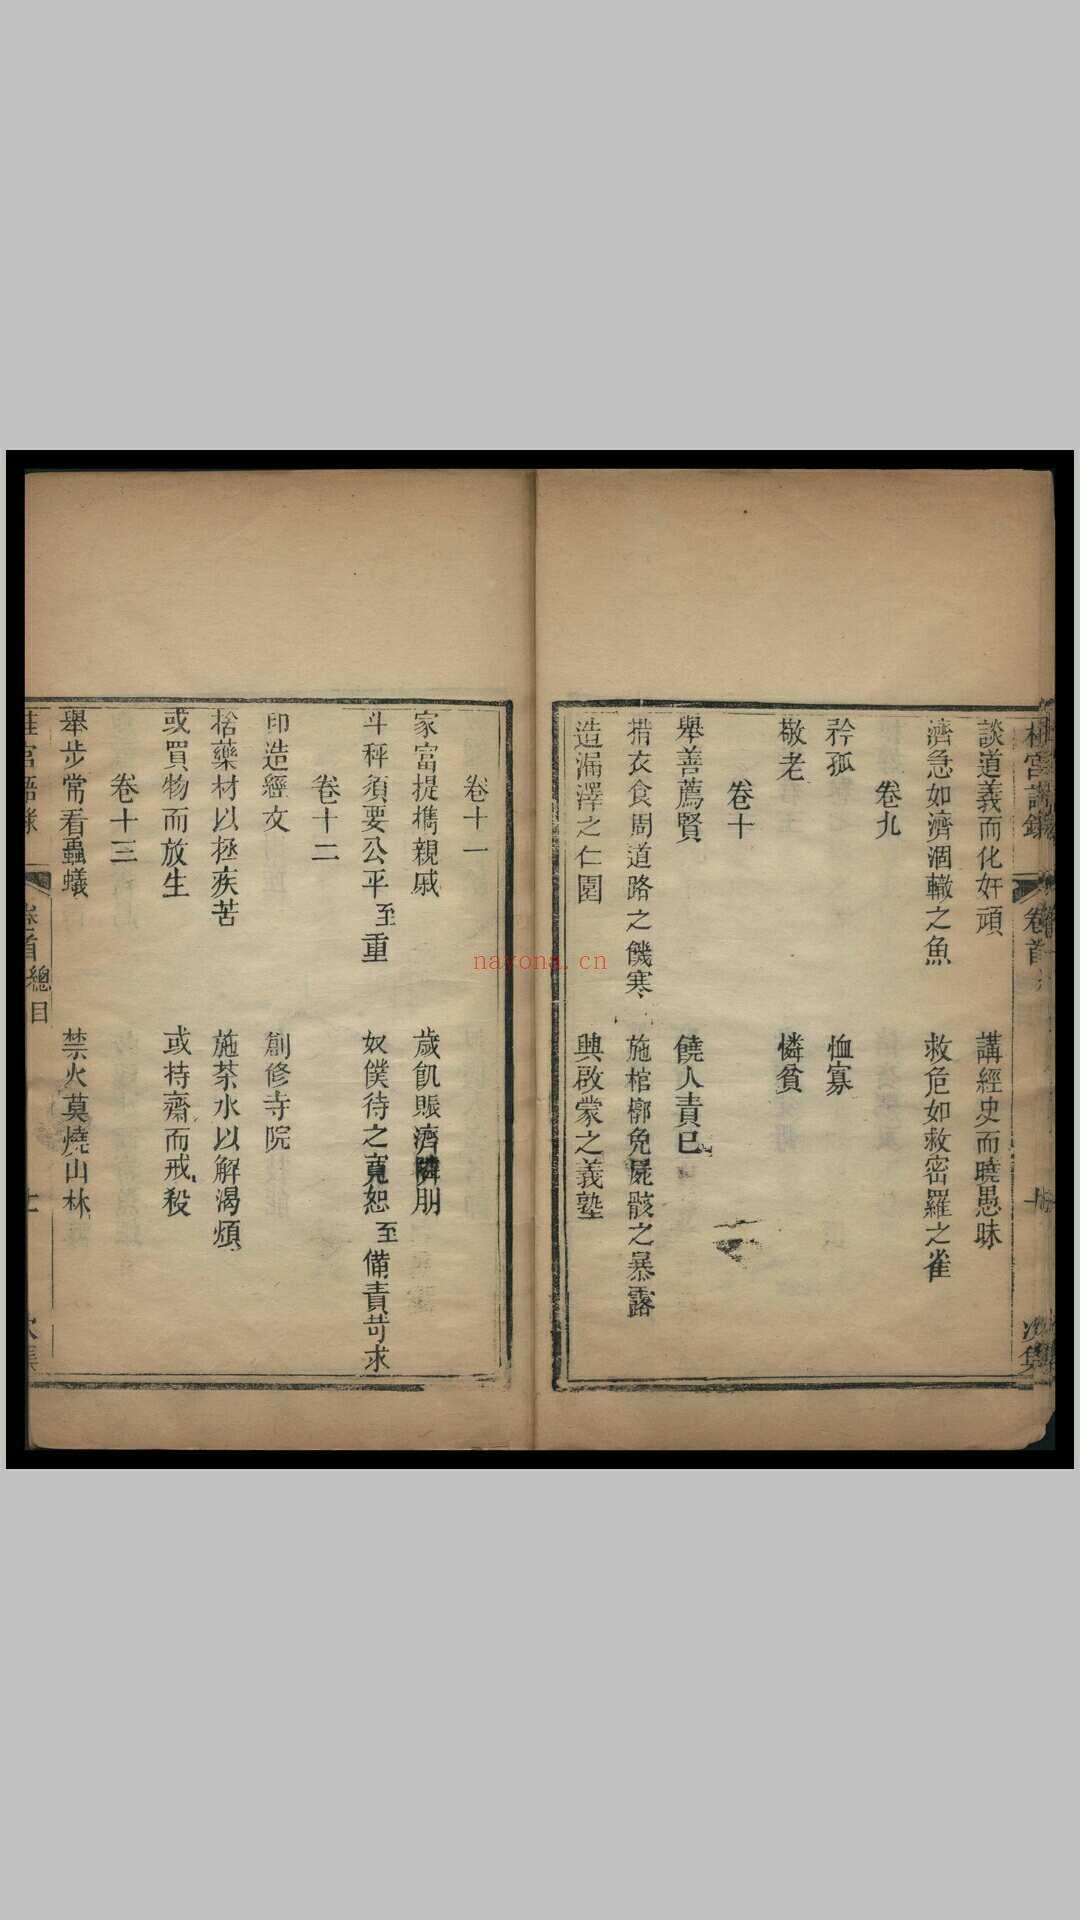 談道義而化奸頑　講經史而曉愚昧
濟急如濟涸轍之魚　救危如救密羅之雀
卷九
矜孤　恤寡
敬老　憐貧
卷十
舉善薦賢　饒人責已
措衣食周道路之饑寒　施棺槨免屍骸之暴露
造漏澤之仁園　興啟蒙之義塾
卷十一
家富提攜親戚　歲飢賑濟隣朋
斗秤須要公平至重　奴僕待之寬恕至備責苛求
卷十二
印造經文　創修寺院
捨藥材以拯疾苦　施茶水以解渴煩
或買物而放生　或持齋而戒殺
卷十三
舉步常看蟲蟻　禁火莫燒山林
宮　卷首　總目
nayona.cn